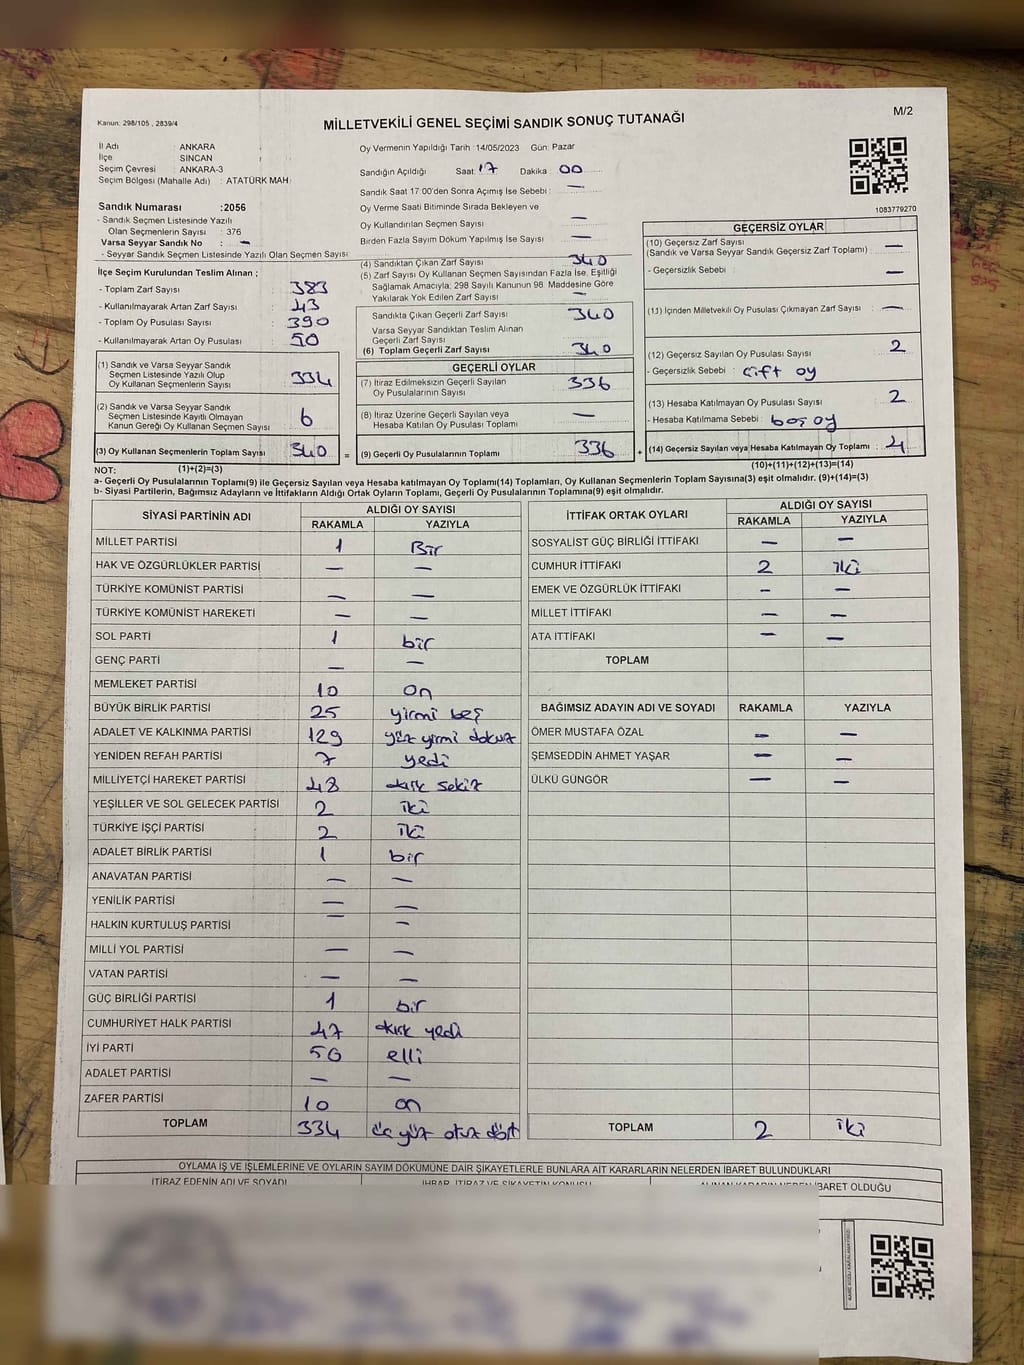 Kanun: 298/105 , 2839/4
MİLLETVEKİLİ GENEL SEÇİMİ SANDIK SONUÇ TUTANAĞI
M/2
İl Adı : ANKARA
İlçe : SİNCAN
Seçim Çevresi : ANKARA-3
Seçim Bölgesi (Mahalle Adı) : ATATÜRK MAH
Oy Vermenin Yapıldığı Tarih :14/05/2023 Gün: Pazar
Sandığın Açıldığı Saat 17 Dakika : 00
Sandık Saat 17:00'den Sonra Açımış İse Sebebi : —
Oy Verme Saati Bitiminde Sırada Bekleyen ve
Oy Kullandırılan Seçmen Sayısı : —
Birden Fazla Sayım Döküm Yapılmış İse Sayısı : —
1083779270
Sandık Numarası :2056
- Sandık Seçmen Listesinde Yazılı
Olan Seçmenlerin Sayısı : 376
Varsa Seyyar Sandık No : —
- Seyyar Sandık Seçmen Listesinde Yazılı Olan Seçmen Sayısı
İlçe Seçim Kurulundan Teslim Alınan ;
- Toplam Zarf Sayısı : 383
- Kullanılmayarak Artan Zarf Sayısı : 43
- Toplam Oy Pusulası Sayısı : 390
- Kullanılmayarak Artan Oy Pusulası : 50
(1) Sandık ve Varsa Seyyar Sandık
Seçmen Listesinde Yazılı Olup
Oy Kullanan Seçmenlerin Sayısı : 334
(2) Sandık ve Varsa Seyyar Sandık
Seçmen Listesinde Kayıtlı Olmayan
Kanun Gereği Oy Kullanan Seçmen Sayısı : 6
(3) Oy Kullanan Seçmenlerin Toplam Sayısı : 340 =
(4) Sandıktan Çıkan Zarf Sayısı : 340
(5) Zarf Sayısı Oy Kullanan Seçmen Sayısından Fazla İse, Eşitliği
Sağlamak Amacıyla; 298 Sayılı Kanunun 98. Maddesine Göre
Yakılarak Yok Edilen Zarf Sayısı : —
Sandıkta Çıkan Geçerli Zarf Sayısı : 340
Varsa Seyyar Sandıktan Teslim Alınan
Geçerli Zarf Sayısı
(6) Toplam Geçerli Zarf Sayısı : 340
GEÇERLİ OYLAR
(7) İtiraz Edilmeksizin Geçerli Sayılan
Oy Pusulalarının Sayısı : 336
(8) İtiraz Üzerine Geçerli Sayılan veya
Hesaba Katılan Oy Pusulası Toplamı : —
(9) Geçerli Oy Pusulalarının Toplamı : 336 +
GEÇERSİZ OYLAR
(10) Geçersiz Zarf Sayısı
(Sandık ve Varsa Seyyar Sandık Geçersiz Zarf Toplamı) : —
- Geçersizlik Sebebi : —
(11) İçinden Milletvekili Oy Pusulası Çıkmayan Zarf Sayısı : —
(12) Geçersiz Sayılan Oy Pusulası Sayısı : 2
- Geçersizlik Sebebi : çift oy
(13) Hesaba Katılmayan Oy Pusulası Sayısı : 2
- Hesaba Katılmama Sebebi : boş oy
(14) Geçersiz Sayılan veya Hesaba Katılmayan Oy Toplamı : 4
NOT: (1)+(2)=(3) (10)+(11)+(12)+(13)=(14)
a- Geçerli Oy Pusulalarının Toplamı(9) ile Geçersiz Sayılan veya Hesaba katılmayan Oy Toplamı(14) Toplamları, Oy Kullanan Seçmenlerin Toplam Sayısına(3) eşit olmalıdır. (9)+(14)=(3)
b- Siyasi Partilerin, Bağımsız Adayların ve İttifakların Aldığı Ortak Oyların Toplamı, Geçerli Oy Pusulalarının Toplamına(9) eşit olmalıdır.
SİYASİ PARTİNİN ADI ALDIĞI OY SAYISI
RAKAMLA YAZIYLA
MİLLET PARTİSİ 1 Bir
HAK VE ÖZGÜRLÜKLER PARTİSİ — —
TÜRKİYE KOMÜNİST PARTİSİ — —
TÜRKİYE KOMÜNİST HAREKETİ — —
SOL PARTİ 1 bir
GENÇ PARTİ — —
MEMLEKET PARTİSİ 10 on
BÜYÜK BİRLİK PARTİSİ 25 yirmi beş
ADALET VE KALKINMA PARTİSİ 129 yüz yirmi dokuz
YENİDEN REFAH PARTİSİ 7 yedi
MİLLİYETÇİ HAREKET PARTİSİ 48 kırk sekiz
YEŞİLLER VE SOL GELECEK PARTİSİ 2 iki
TÜRKİYE İŞÇİ PARTİSİ 2 iki
ADALET BİRLİK PARTİSİ 1 bir
ANAVATAN PARTİSİ — —
YENİLİK PARTİSİ — —
HALKIN KURTULUŞ PARTİSİ — —
MİLLİ YOL PARTİSİ — —
VATAN PARTİSİ — —
GÜÇ BİRLİĞİ PARTİSİ 1 bir
CUMHURİYET HALK PARTİSİ 47 kırk yedi
İYİ PARTİ 50 elli
ADALET PARTİSİ — —
ZAFER PARTİSİ 10 on
TOPLAM 334 üç yüz otuz dört
İTTİFAK ORTAK OYLARI ALDIĞI OY SAYISI
RAKAMLA YAZIYLA
SOSYALİST GÜÇ BİRLİĞİ İTTİFAKI — —
CUMHUR İTTİFAKI 2 iki
EMEK VE ÖZGÜRLÜK İTTİFAKI — —
MİLLET İTTİFAKI — —
ATA İTTİFAKI — —
TOPLAM
BAĞIMSIZ ADAYIN ADI VE SOYADI RAKAMLA YAZIYLA
ÖMER MUSTAFA ÖZAL — —
ŞEMSEDDİN AHMET YAŞAR — —
ÜLKÜ GÜNGÖR — —
TOPLAM 2 iki
OYLAMA İŞ VE İŞLEMLERİNE VE OYLARIN SAYIM DÖKÜMÜNE DAİR ŞİKAYETLERLE BUNLARA AİT KARARLARIN NELERDEN İBARET BULUNDUKLARI
İTİRAZ EDENİN ADI VE SOYADI İHBAR, İTİRAZ VE ŞİKAYETİN KONUSU ALINAN KARARIN NEDEN İBARET OLDUĞU